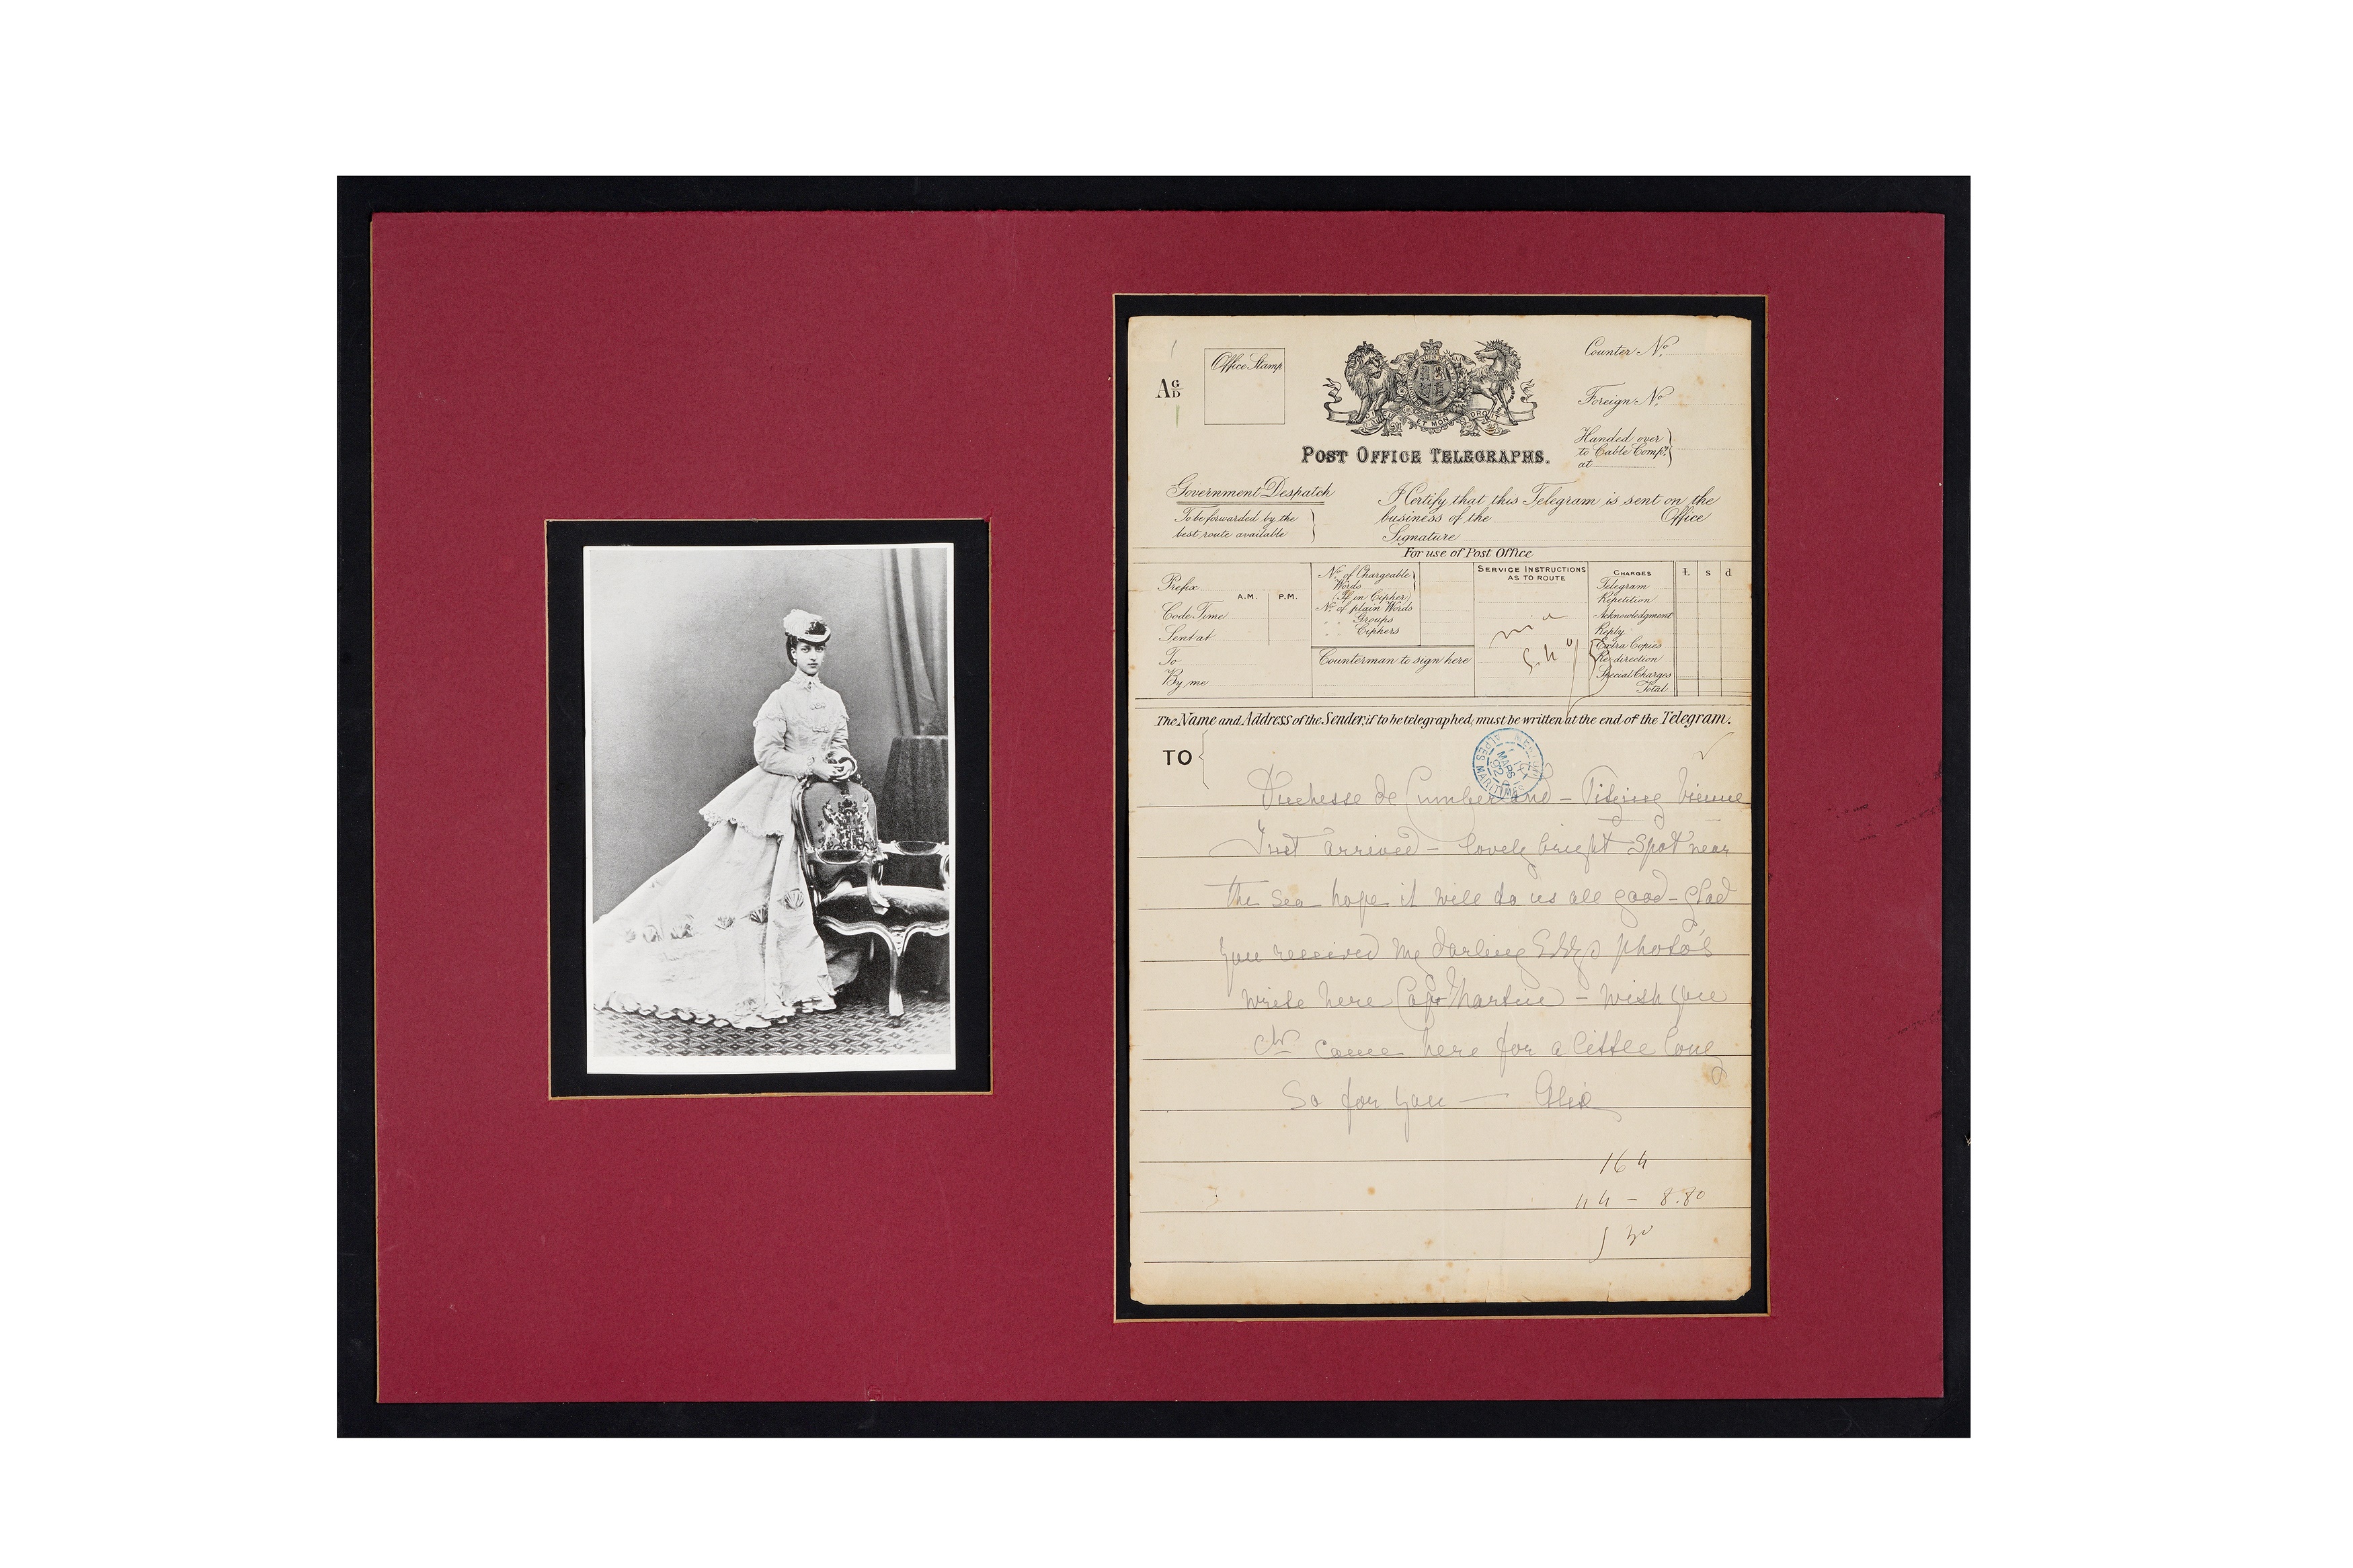 A G/D
Office Stamp
DIEU ET MON DROIT
Counter No.
Foreign No.
Handed over
to Cable Compy.
at
POST OFFICE TELEGRAPHS.
Government Despatch
To be forwarded by the
best route available
I Certify that this Telegram is sent on the
business of the Office
Signature
For use of Post Office
Prefix
A.M. P.M.
Code Time
Sent at
To
By me
No. of Chargeable
Words
(If in Cipher)
No. of plain Words
" " Groups
" " Ciphers
Counterman to sign here
SERVICE INSTRUCTIONS
AS TO ROUTE
CHARGES £ s d
Telegram
Repetition
Acknowledgment
Reply
Extra Copies
Re-direction
Special Charges
Total
The Name and Address of the Sender, if to be telegraphed, must be written at the end of the Telegram.
TO
MARS
92
ALPES MARITIMES
Duchesse de Cumberland – Vienne
Just arrived – lovely bright spot near
the sea hope it will do us all good – glad
you received my darling Eddys photo's
write here Cap Martin – wish you
cld come here for a little long
so for you — Alix
164
44 – 8.80